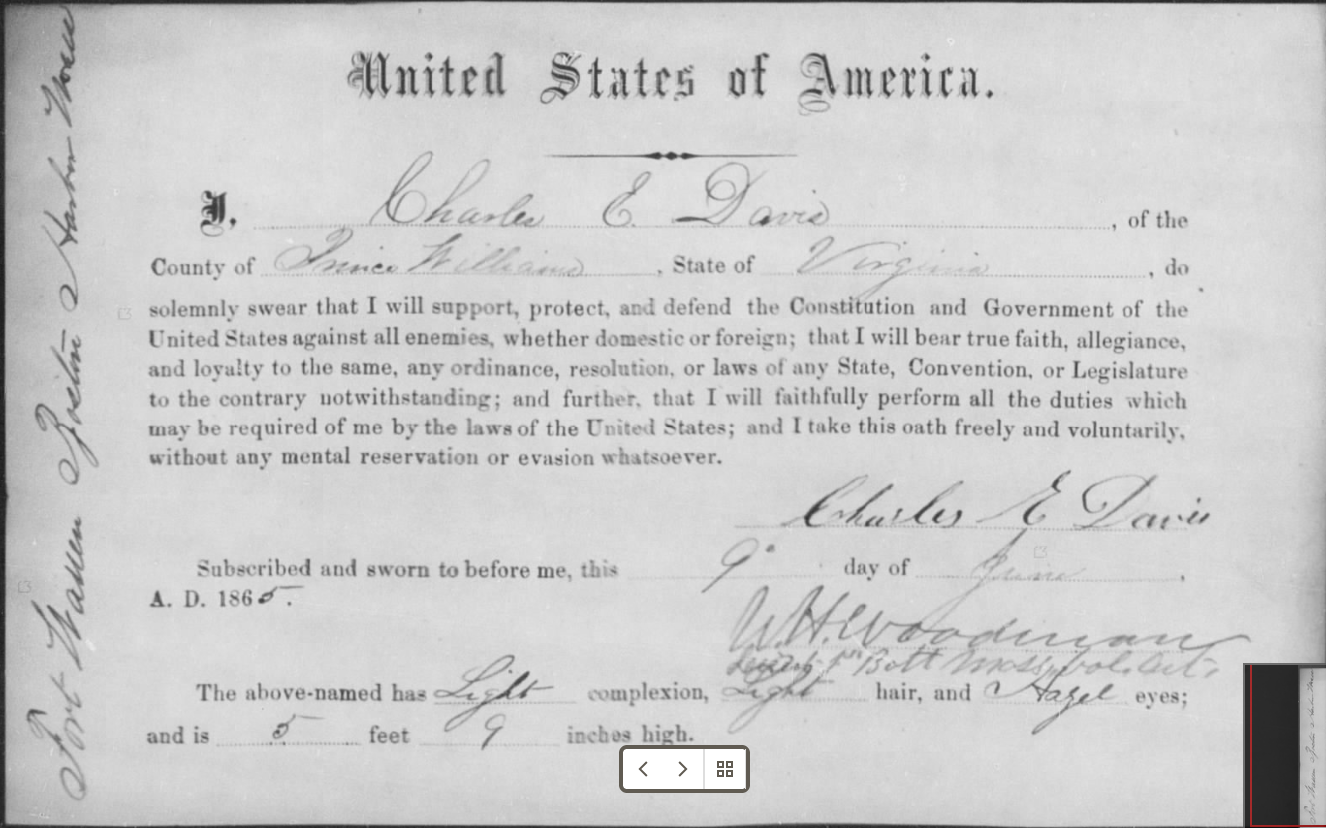 Fort Warren Boston Harbor Mass
United States of America.
I, Charles E. Davis, of the
County of Prince William, State of Virginia, do
solemnly swear that I will support, protect, and defend the Constitution and Government of the
United States against all enemies, whether domestic or foreign; that I will bear true faith, allegiance,
and loyalty to the same, any ordinance, resolution, or laws of any State, Convention, or Legislature
to the contrary notwithstanding; and further, that I will faithfully perform all the duties which
may be required of me by the laws of the United States; and I take this oath freely and voluntarily,
without any mental reservation or evasion whatsoever.
Charles E Davis
Subscribed and sworn to before me, this 9" day of June,
A. D. 1865.
W. H. Woodman
1st Batt Mass. Vol. Art.
The above-named has Light complexion, Light hair, and Hazel eyes;
and is 5 feet 9 inches high.